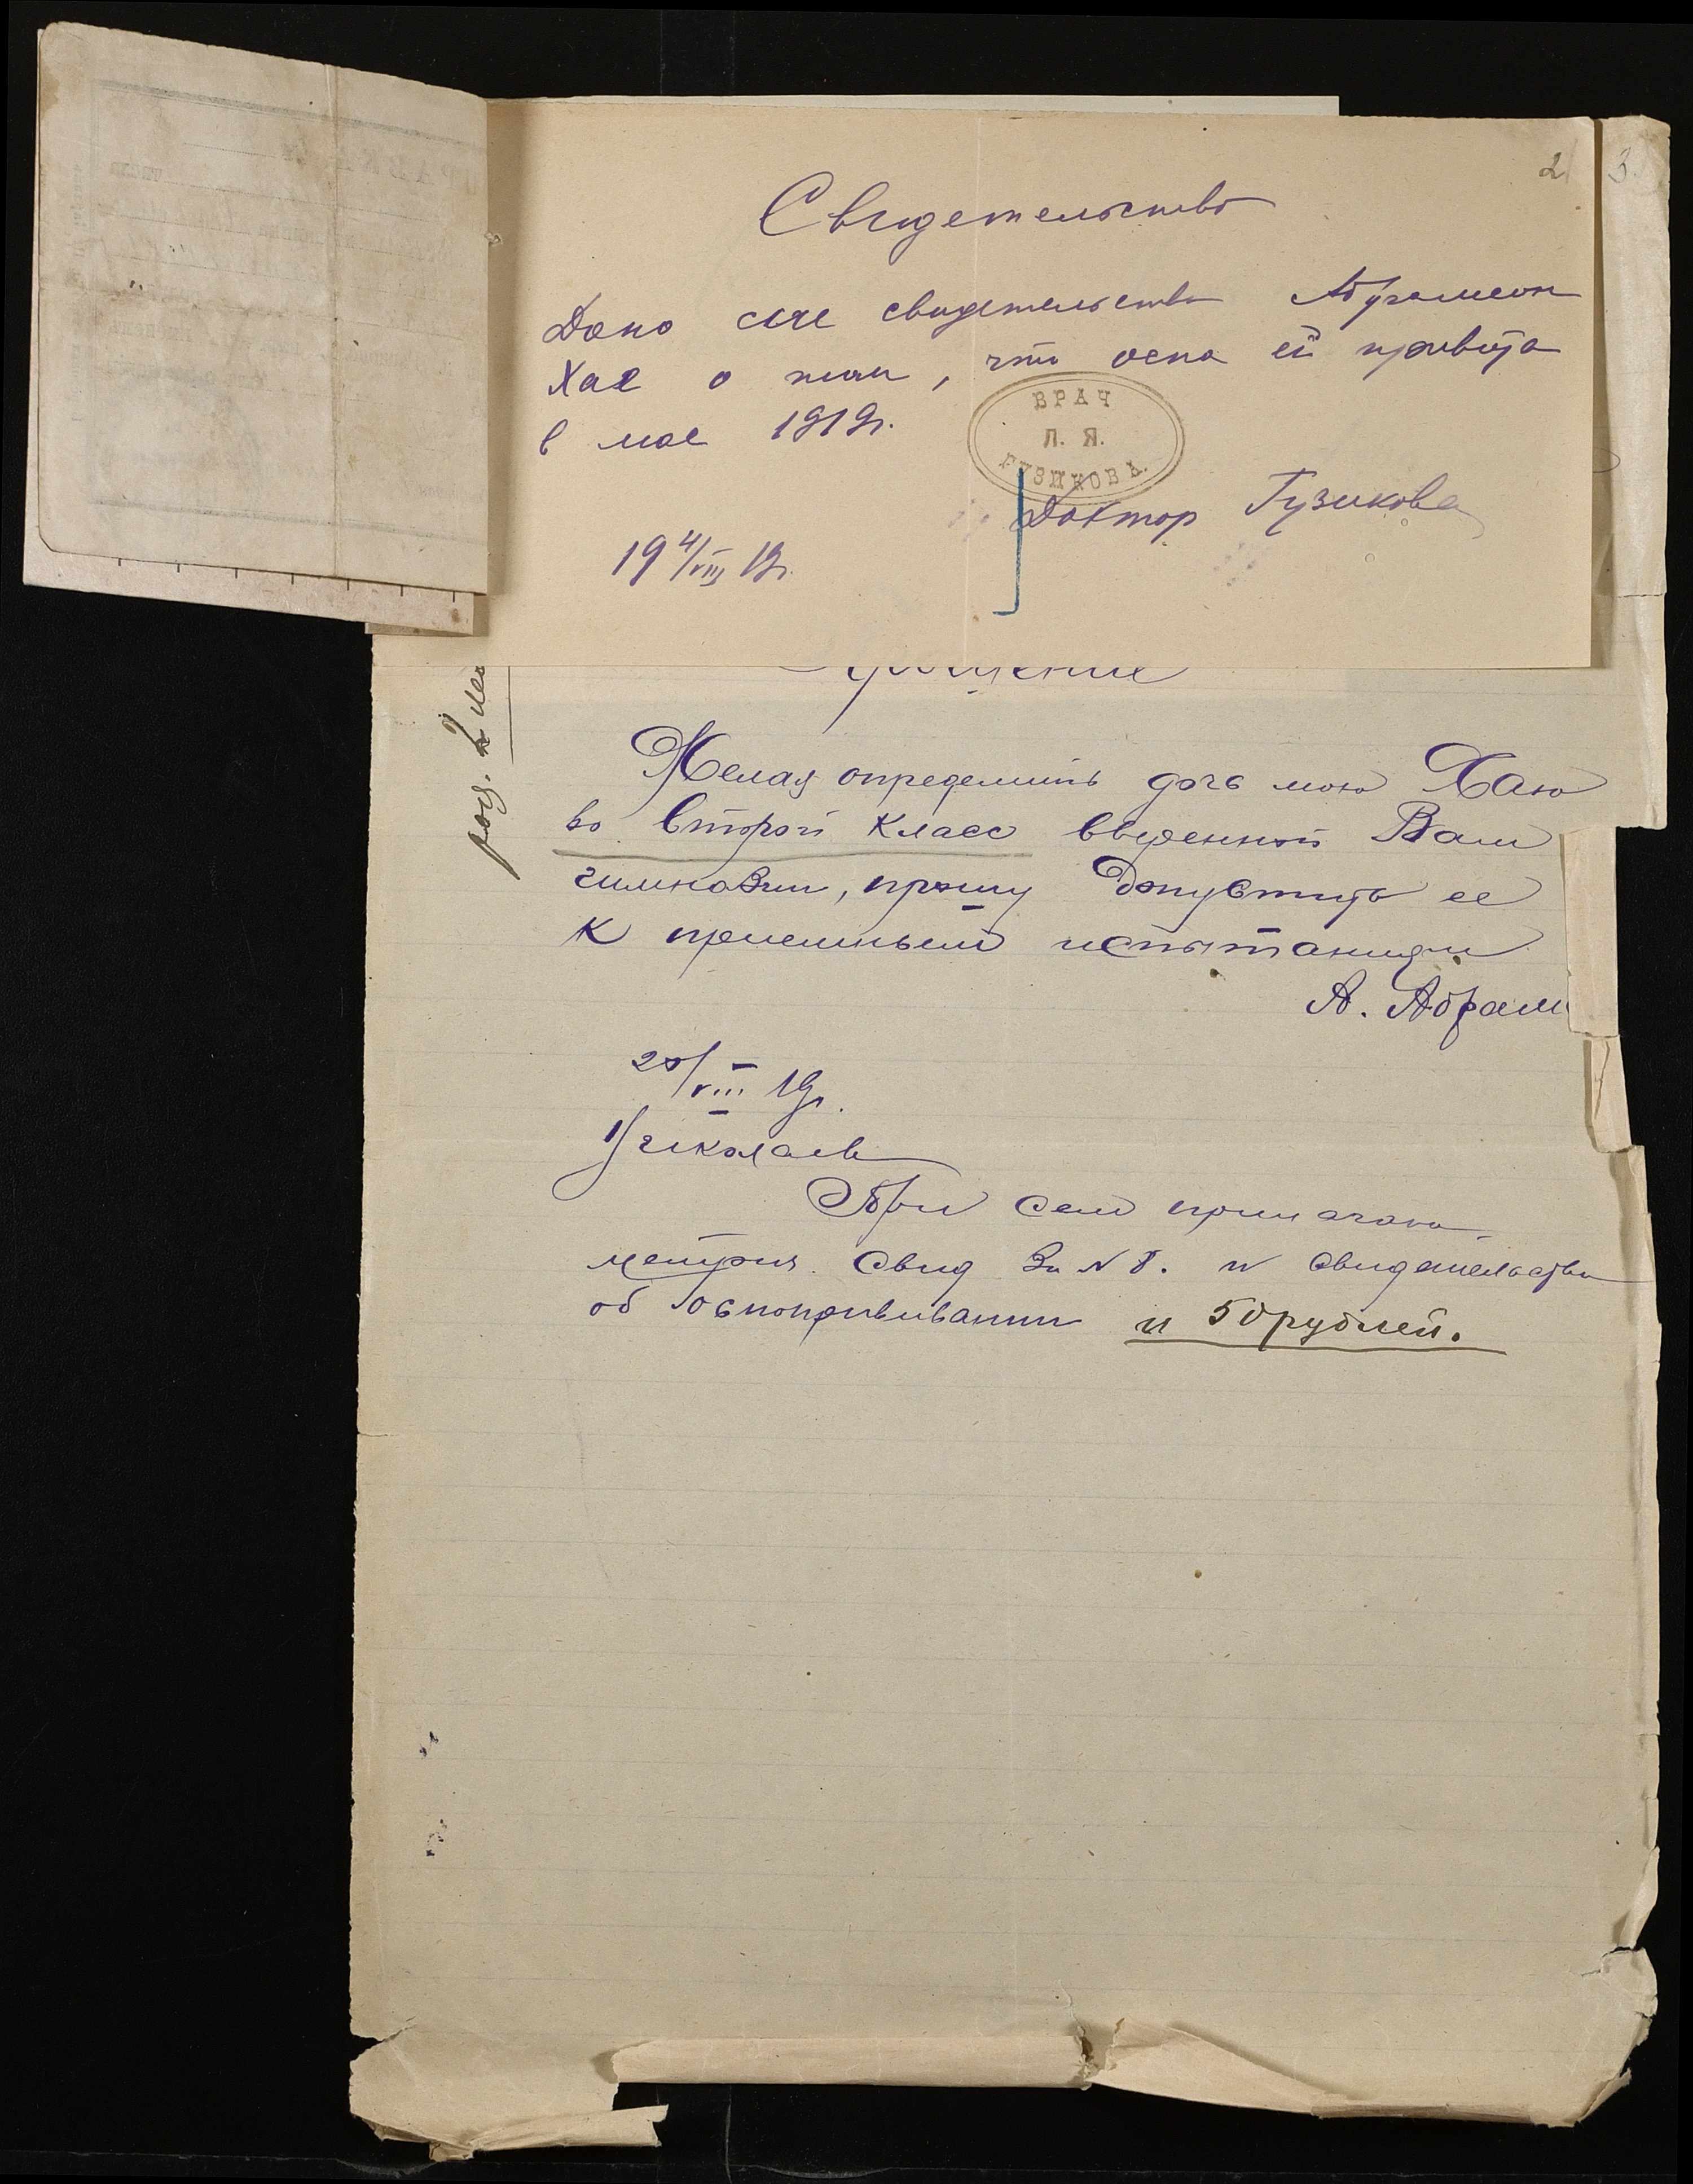 2 3
Свидетельство
Дано сие свидетельство Абрамсон
Хае о том, что оспа ей привита
в мае 1919г.
ВРАЧ
Л. Я.
ГУЗИКОВА.
Доктор Гузикова
19 4/VIII 19г.
Прошение
род. 2
Желая определить дочь мою Хаю
во второй класс вверенной Вам
гимназии, прошу допустить ее
к приемным испытаниям
А. Абрам
20/VIII 19г.
Николаев
При сем прилагаю
метрич. свид за № 8. и свидетельство
об оспопрививании и 50 рублей.